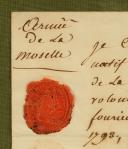 Armée
de La
Moselle
Je C
natif
de La
volon
fourie
1792,